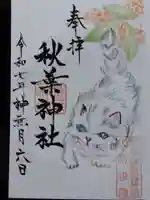 奉拝
秋葉神社
令和七年神無月六日